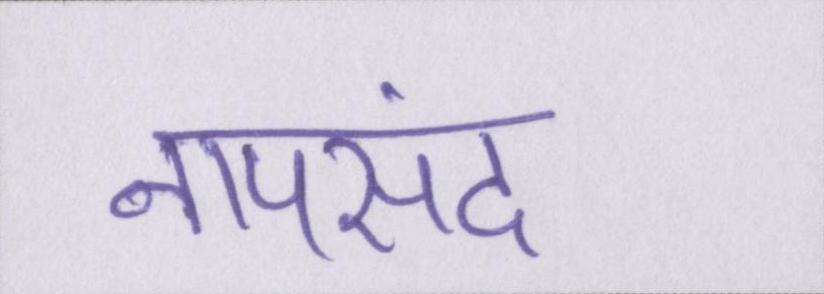 नापसंद